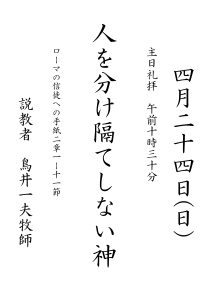 四月二十四日(日)
主日礼拝　午前十時三十分
人を分け隔てしない神
ローマの信徒への手紙二章一ー十一節
説教者　鳥井一夫牧師